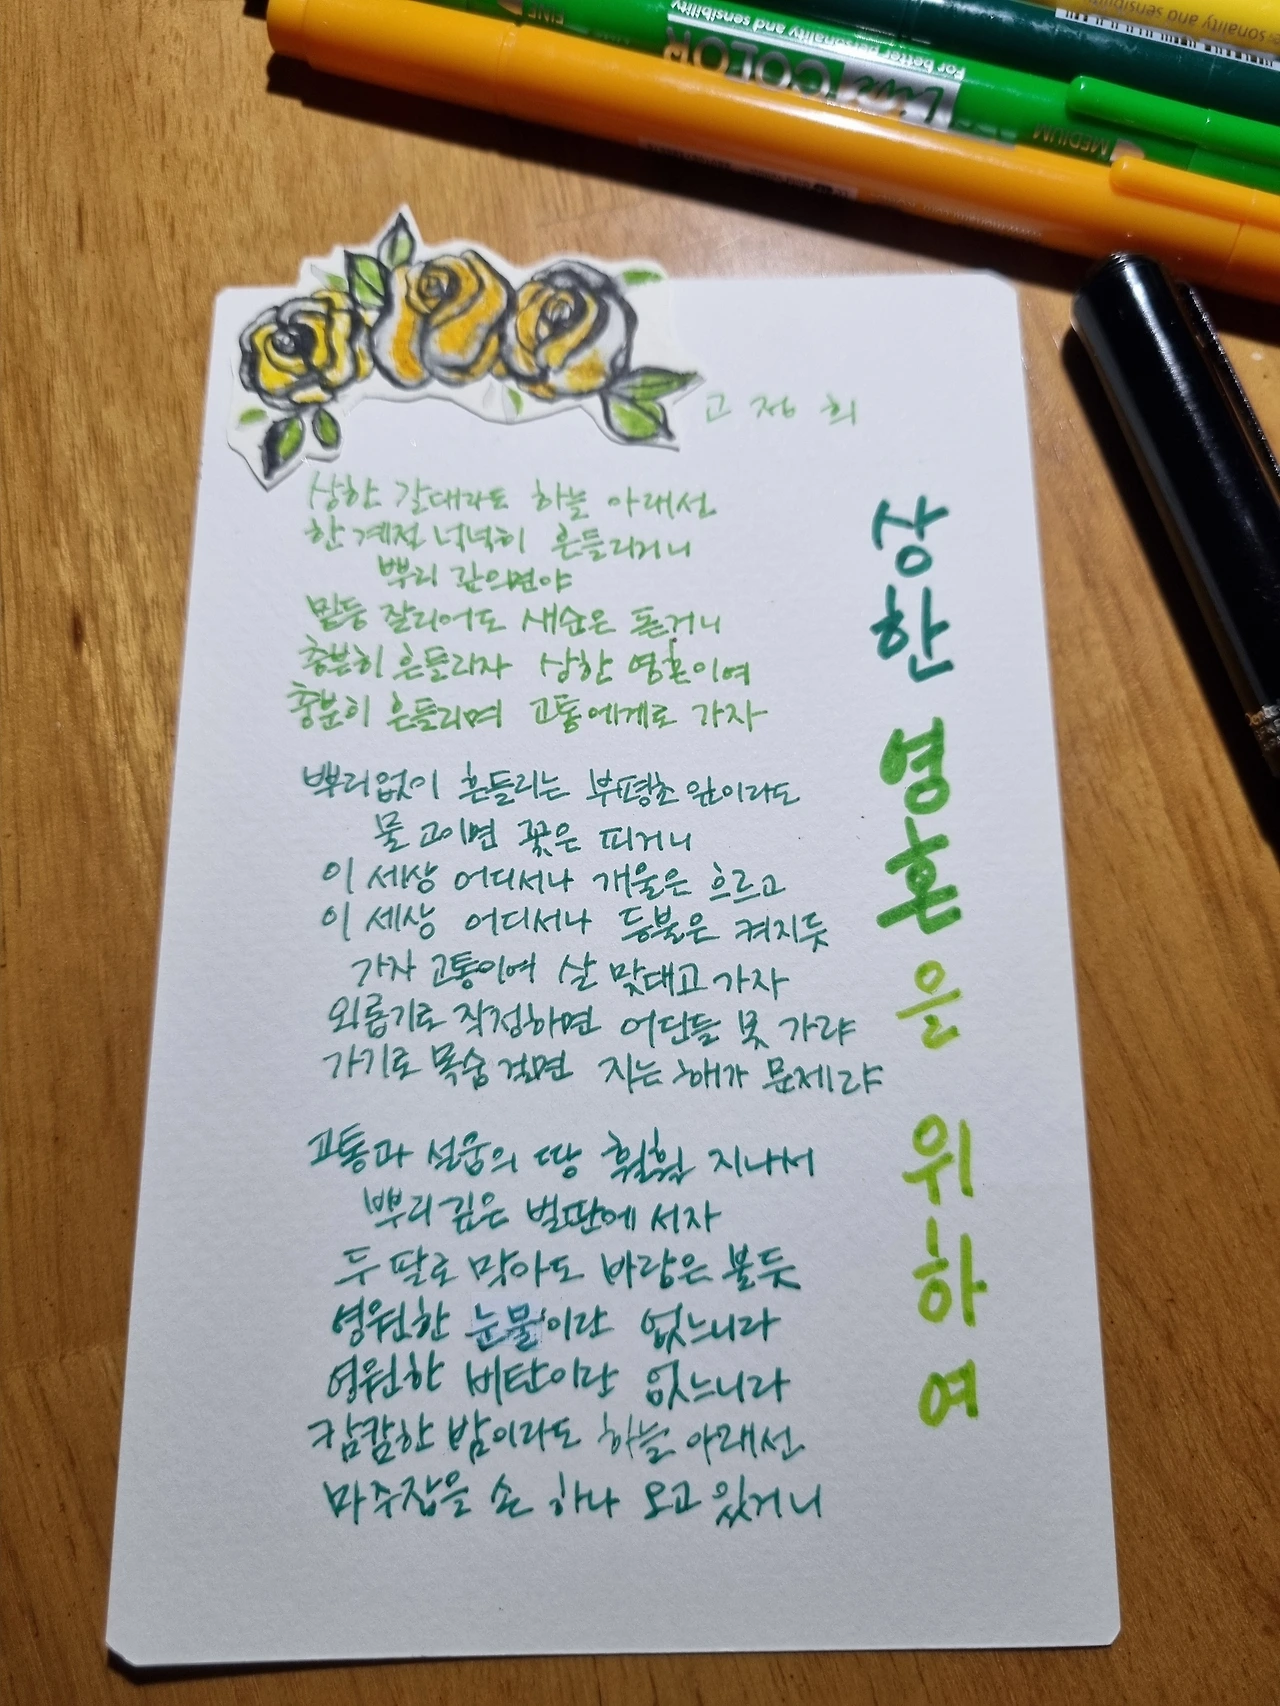 FINE
Live COLOR
For better personality and sensibility
MEDIUM
sonality and sensibility
고정희
상한 영혼을 위하여
상한 갈대라도 하늘 아래선
한 계절 넉넉히 흔들리거니
뿌리 깊의면야
밑둥 잘리어도 새순은 돋거니
충분히 흔들리자 상한 영혼이여
충분히 흔들리며 고통에게로 가자
뿌리없이 흔들리는 부평초 잎이라도
물 고이면 꽃은 피거니
이 세상 어디서나 개울은 흐르고
이 세상 어디서나 등불은 켜지듯
가자 고통이여 살 맞대고 가자
외롭기로 작정하면 어딘들 못 가랴
가기로 목숨 걸면 지는 해가 문제랴
고통과 설움의 땅 훨훨 지나서
뿌리 깊은 벌판에 서자
두 팔로 막아도 바람은 불듯
영원한 눈물이란 없느니라
영원한 비탄이란 없느니라
캄캄한 밤이라도 하늘 아래선
마주잡을 손 하나 오고 있거니